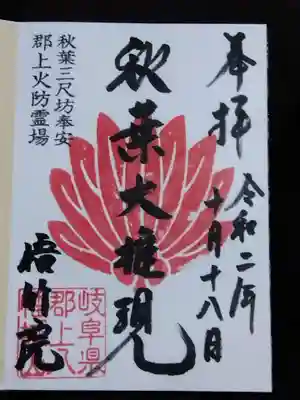 奉拝
令和二年
十月十八日
秋葉大権現
秋葉三尺坊奉安
郡上火防霊場
悟竹院
岐阜県
郡上八